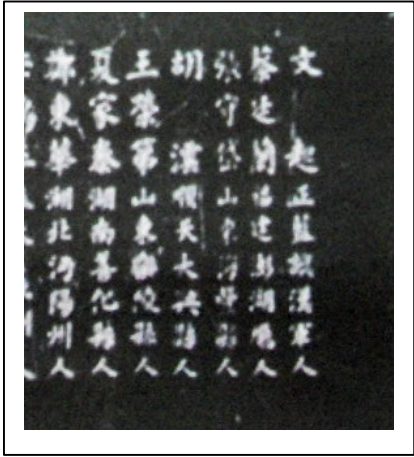 文起正藍旗漢軍人
蔡廷蘭福建彭湖廳人
張守岱山東海豐縣人
胡順天大興縣人
王榮第山東樂陵縣人
夏家泰湖南善化縣人
東華湖北沔陽州人